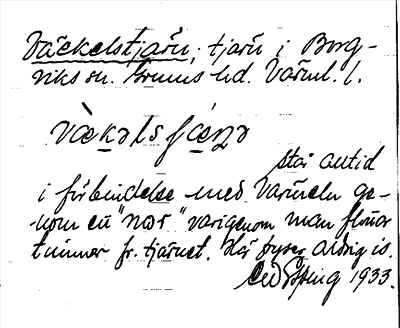 Väckelstjärn, tjärn i Borg-
viks sn. Grums hd. Värml. l.
vàkalsʃæ̀ṇə
står alltid
i förbindelse med Värmeln ge-
nom en "näs" varigenom man flottar
timmer fr. tjärnet. Här fryser aldrig is.
1933.